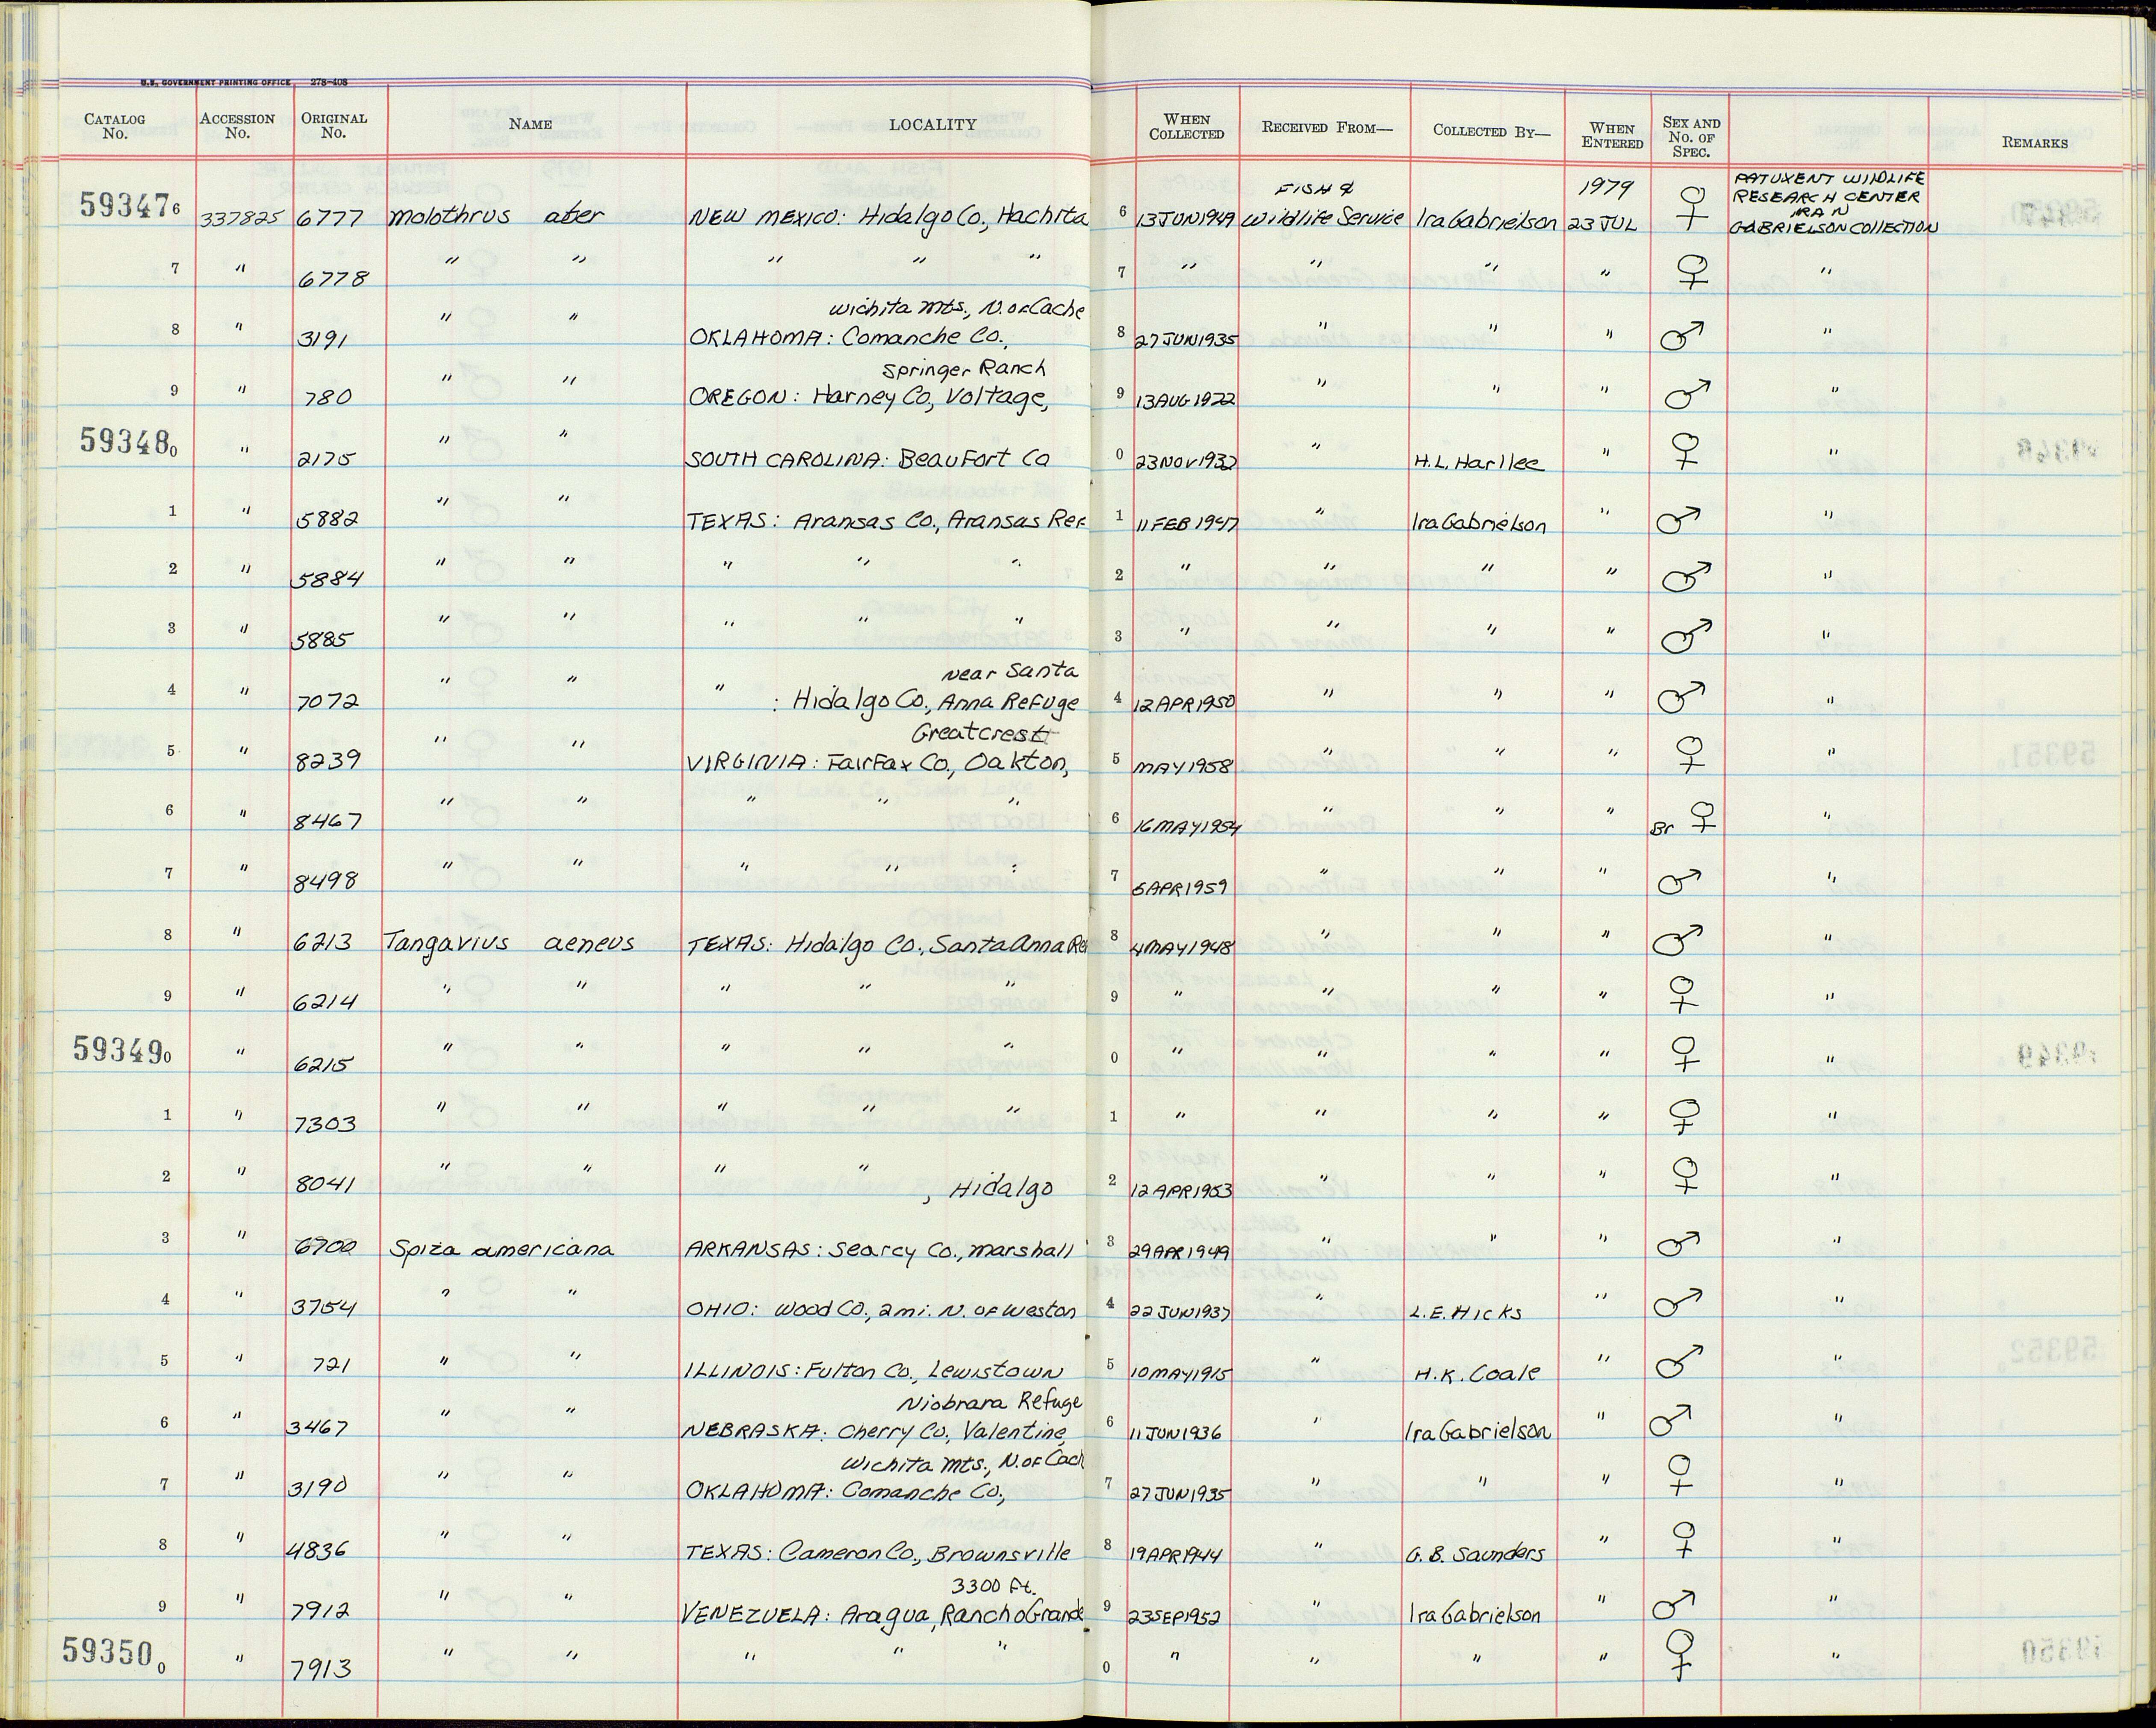 U.S. GOVERNMENT PRINTING OFFICE 278-408
CATALOG No. ACCESSION No. ORIGINAL No. NAME LOCALITY WHEN COLLECTED RECEIVED FROM— COLLECTED BY— WHEN ENTERED SEX AND No. OF SPEC. REMARKS
593476 337825 6777 Molothrus ater NEW MEXICO: Hidalgo Co., Hachita 6 13 JUN 1949 FISH & Wildlife Service Ira Gabrielson 1979 23 JUL ♀ PATUXENT WILDLIFE RESEARCH CENTER IRA N GABRIELSON COLLECTION
7 " 6778 " " " " " 7 " " " " ♀ "
8 " 3191 " " OKLAHOMA: Comanche Co., Wichita Mts., N. of Cache 8 27 JUN 1935 " " " ♂ "
9 " 780 " " OREGON: Harney Co., Voltage, Springer Ranch 9 13 AUG 1922 " " " ♂ "
593480 " 2175 " " SOUTH CAROLINA: Beaufort Co 0 23 NOV 1932 " H. L. Harllee " ♀ "
1 " 5882 " " TEXAS: Aransas Co., Aransas Ref 1 11 FEB 1947 " Ira Gabrielson " ♂ "
2 " 5884 " " " " " 2 " " " " ♂ "
3 " 5885 " " " " " 3 " " " " ♂ "
4 " 7072 " " " : Hidalgo Co., near Santa Anna Refuge 4 12 APR 1950 " " " ♂ "
5 " 8239 " " VIRGINIA: Fairfax Co., Oakton, Greatcrest 5 MAY 1958 " " " ♀ "
6 " 8467 " " " " " 6 16 MAY 1954 " " " Br ♀ "
7 " 8498 " " " " " 7 6 APR 1959 " " " ♂ "
8 " 6213 Tangavius aeneus TEXAS: Hidalgo Co., Santa Anna Ref 8 4 MAY 1948 " " " ♂ "
9 " 6214 " " " " " 9 " " " " ♀ "
593490 " 6215 " " " " " 0 " " " " ♀ "
1 " 7303 " " " " " 1 " " " " ♀ "
2 " 8041 " " " " , Hidalgo 2 12 APR 1953 " " " ♀ "
3 " 6700 Spiza americana ARKANSAS: Searcy Co., Marshall 3 29 APR 1949 " " " ♂ "
4 " 3754 " " OHIO: Wood Co., 2 mi. N. of Weston 4 22 JUN 1937 " L. E. Hicks " ♂ "
5 " 721 " " ILLINOIS: Fulton Co., Lewistown 5 10 MAY 1915 " H. K. Coale " ♂ "
6 " 3467 " " NEBRASKA: Cherry Co., Valentine, Niobrara Refuge 6 11 JUN 1936 " Ira Gabrielson " ♂ "
7 " 3190 " " OKLAHOMA: Comanche Co., Wichita Mts., N. of Cach 7 27 JUN 1935 " " " ♀ "
8 " 4836 " " TEXAS: Cameron Co., Brownsville 8 19 APR 1944 " G. B. Saunders " ♀ "
9 " 7912 " " VENEZUELA: Aragua, Rancho Grande 3300 Ft. 9 23 SEP 1952 " Ira Gabrielson " ♂ "
593500 " 7913 " " " " " 0 " " " " ♀ "